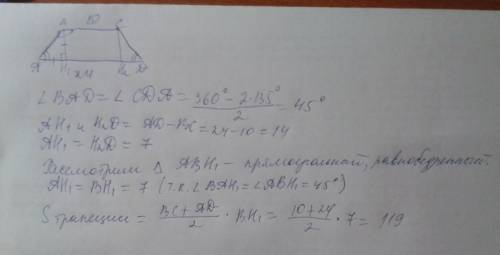 B 10 C
A H₁ H₂ D
24
∠BAD = ∠CDA = (360° - 2·135°)/2 = 45°
AH₁ и H₂D = AD - BC = 24 - 10 = 14
AH₁ = H₂D = 7
Рассмотрим △ ABH₁ - прямоугольный, равнобедренный.
AH₁ = BH₁ = 7 (т.к. ∠BAH₁ = ∠ABH₁ = 45°)
S трапеции = (BC + AD)/2 · BH₁ = (10 + 24)/2 · 7 = 119